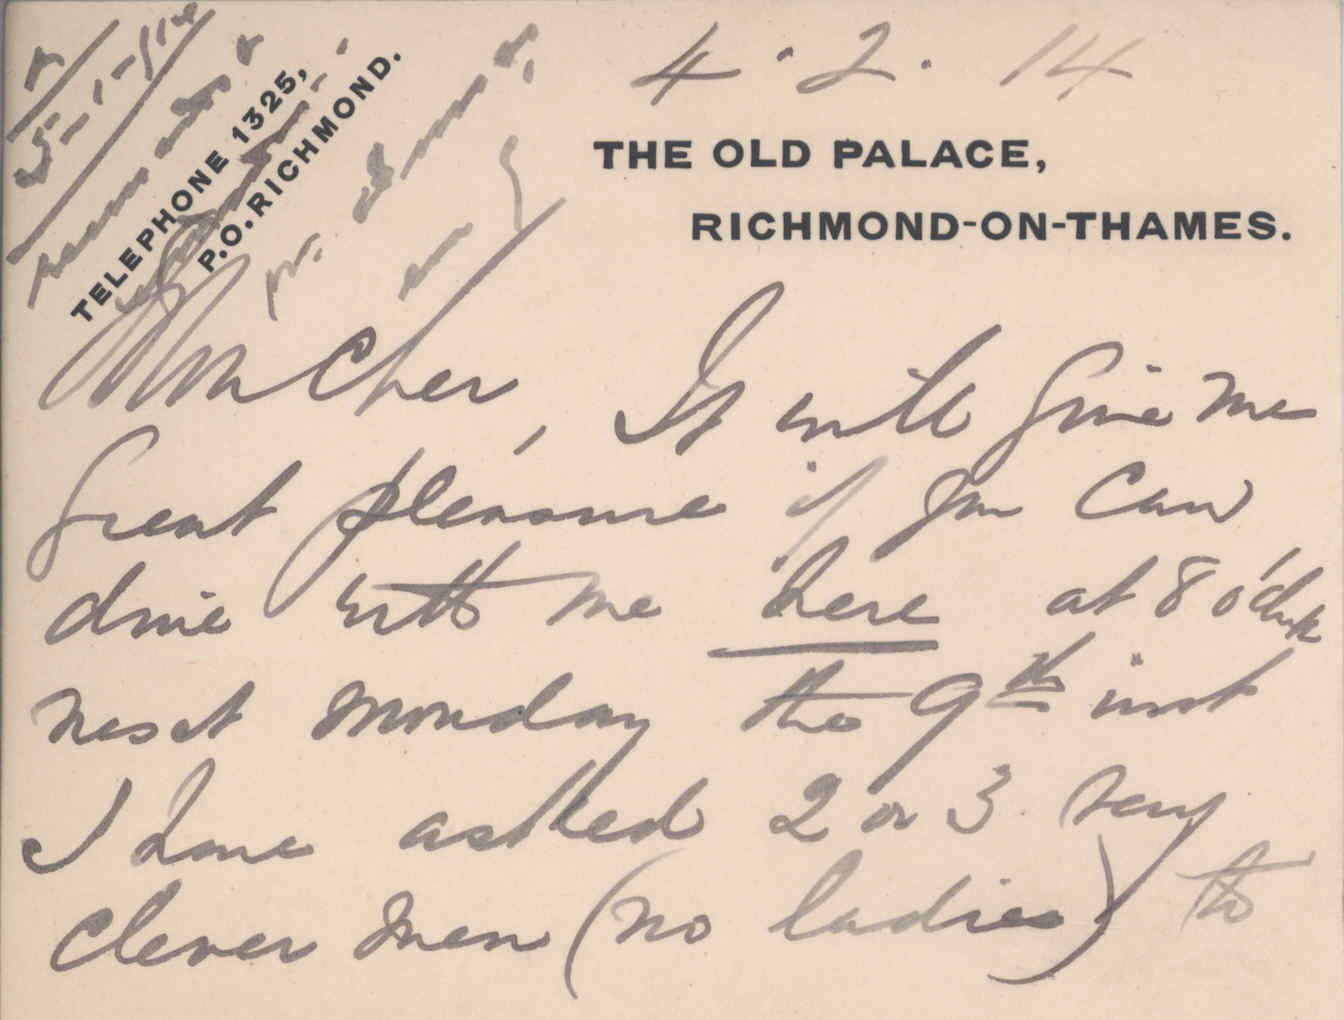 TELEPHONE 1325,
P.O. RICHMOND.
4 . 2 . 14
THE OLD PALACE,
RICHMOND-ON-THAMES.
Mon Cher, It will give me
great pleasure if you can
dine with me here at 8 o'clock
next Monday the 9th inst
I have asked 2 or 3 very
clever men (no ladies) to